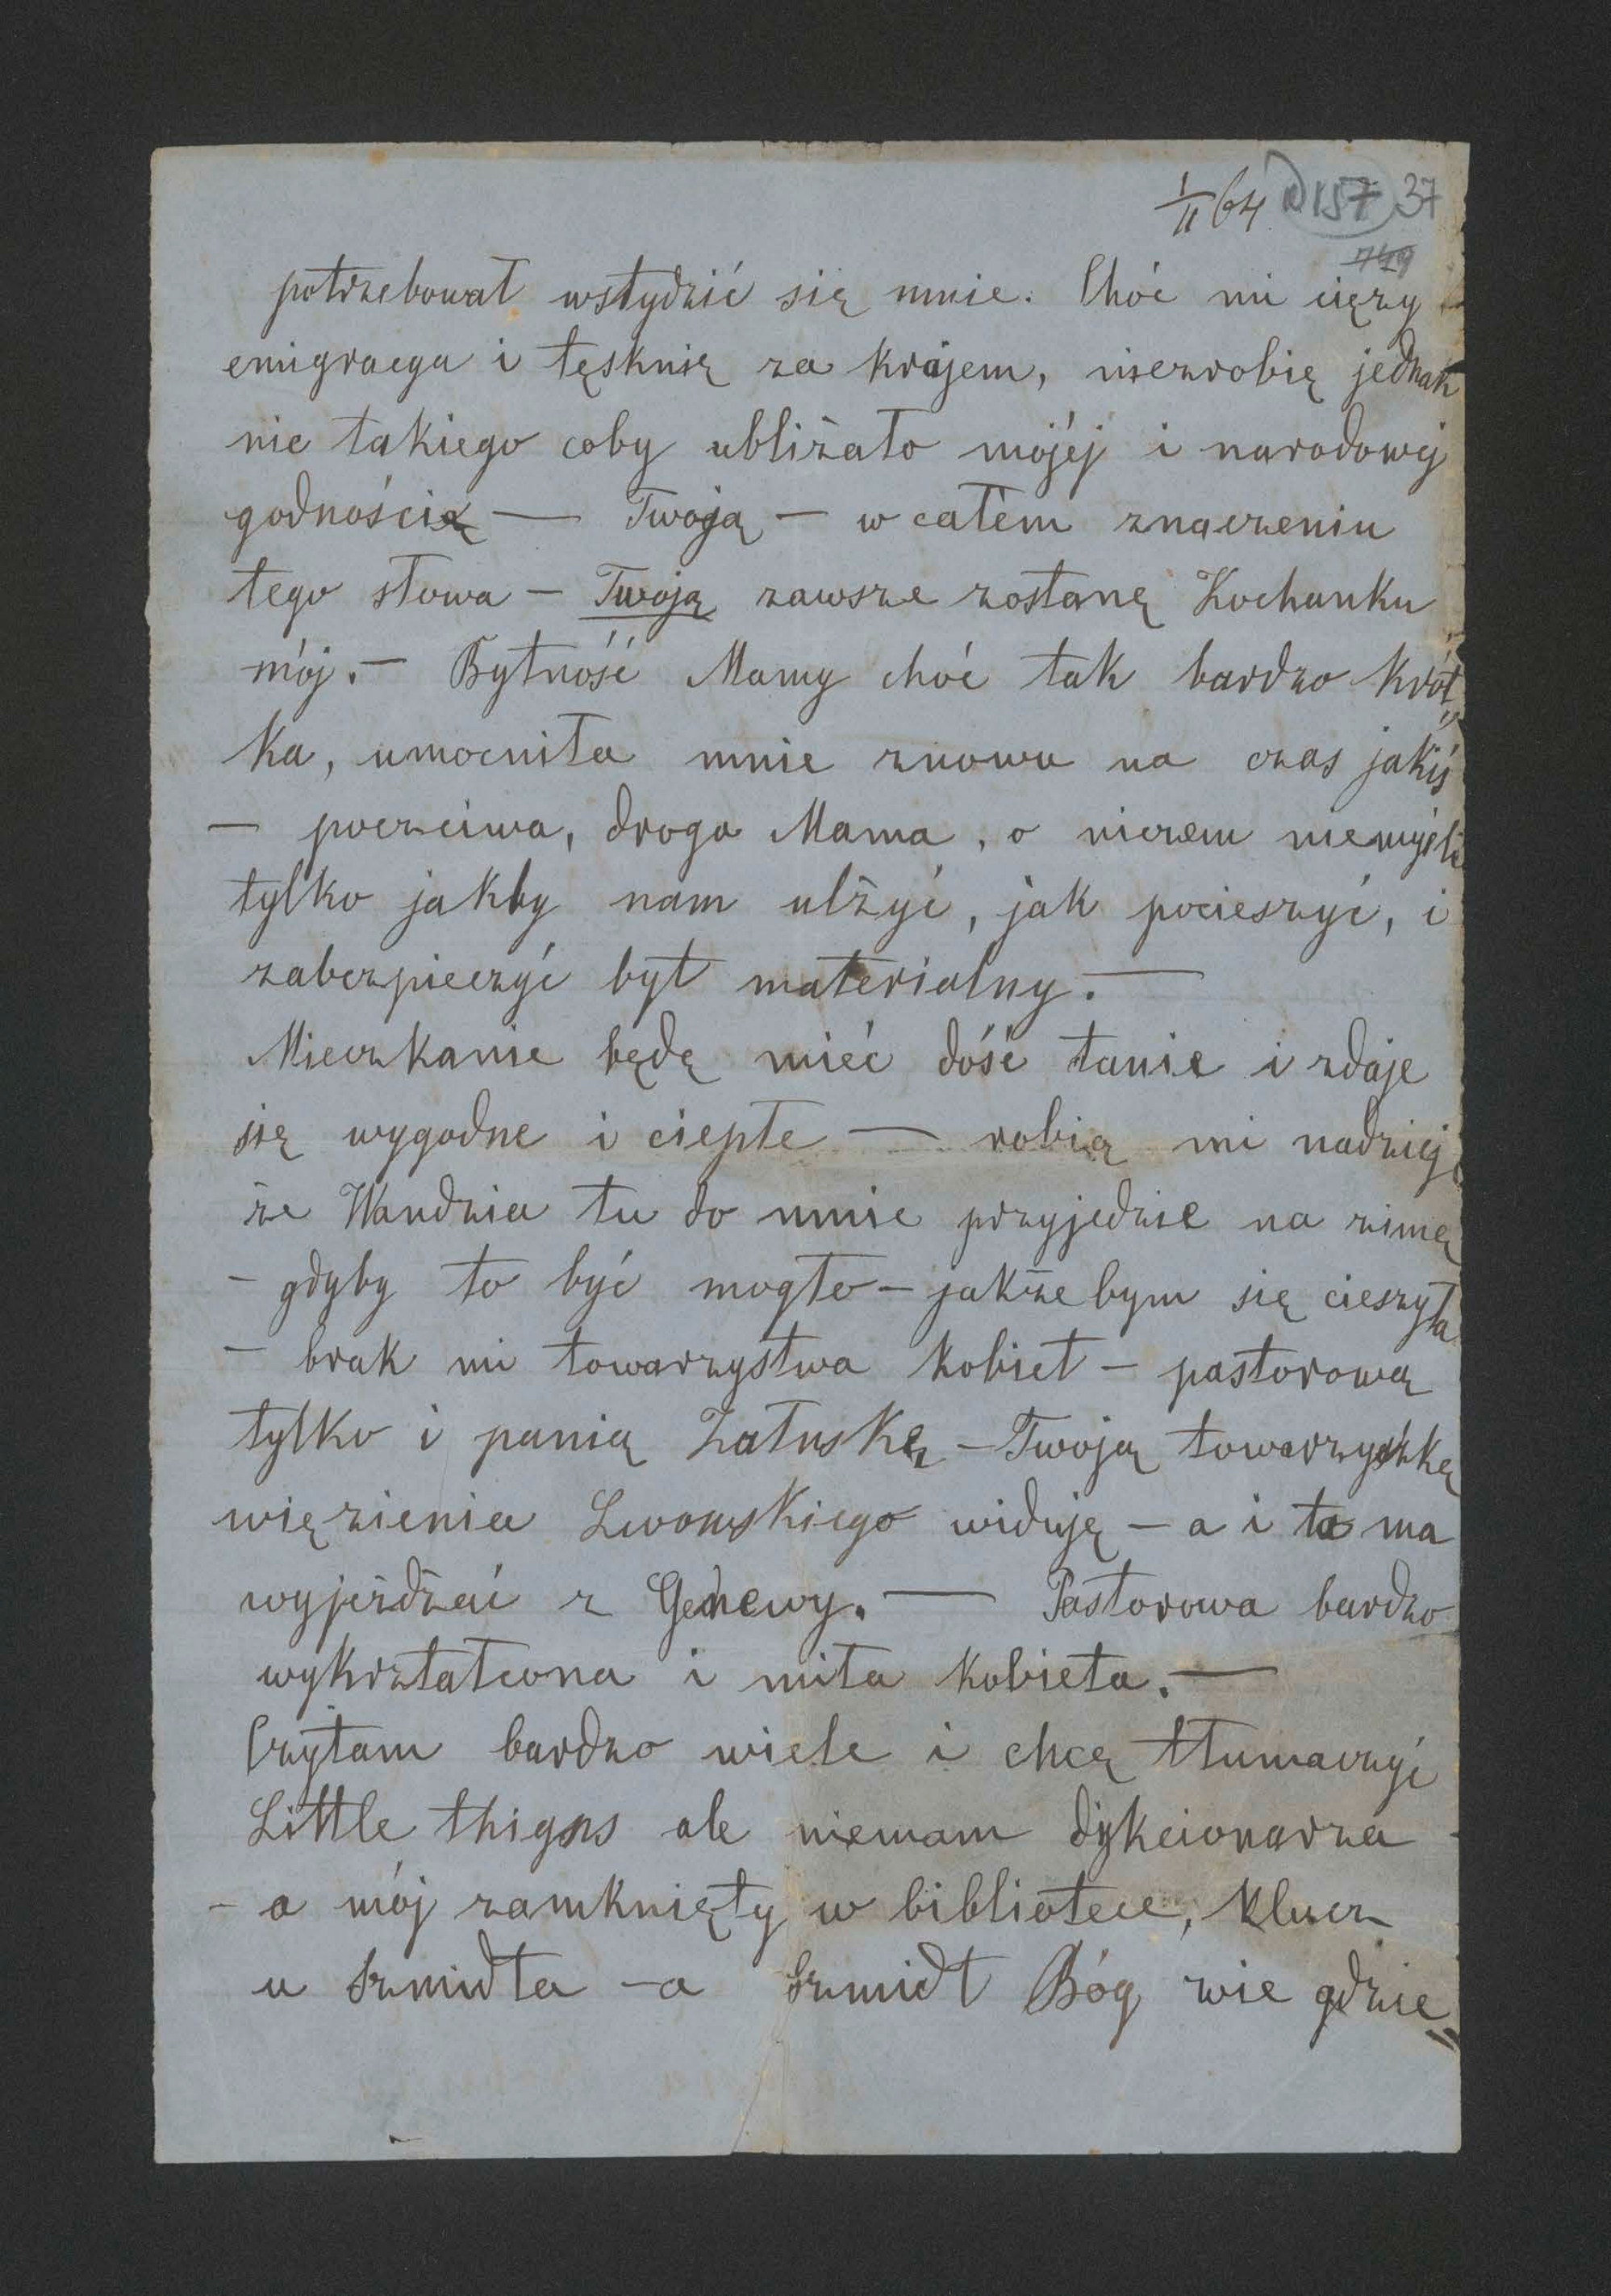 1/II 64 157 37
749
potrzebował wstydzić się mnie. Choć mi cięży
emigracya i tęsknię za krajem, niezrobię jednak
nic takiego coby ubliżało mójéj i narodowej
godności — Twoją — w całém znaczeniu
tego słowa — Twoją zawsze zostanę Kochanku
mój. — Bytność Mamy choć tak bardzo krót„
ka, umocniła mnie znowu na czas jakiś
— poczciwa, droga Mama, o niczem niemyśli
tylko jakby nam ulżyć, jak pocieszyć, i
zabezpieczyć byt materialny. —
Mieczkanie będę mieć dość tanie i zdaje
się wygodne i ciepłe — robią mi nadzieję
że Wandzia tu do mnie przyjedzie na zimę
— gdyby to być mogło — jakże bym się cieszyła
— brak mi towarzystwa kobiet — pastorową
tylko i panią Załuskę — Twoją towarzyszkę
więzienia Lwowskiego widuję — a i ta ma
wyjeżdżać z Genewy. — Pastorowa bardzo
wykrztałcona i miła kobieta. —
Czytam bardzo wiele i chcę tłumaczyć
Little thigns ale niemam dykcionarza
— a mój zamknięty w bibliotece, klucz
u Szmidta — a Szmidt Bóg wie gdzie„